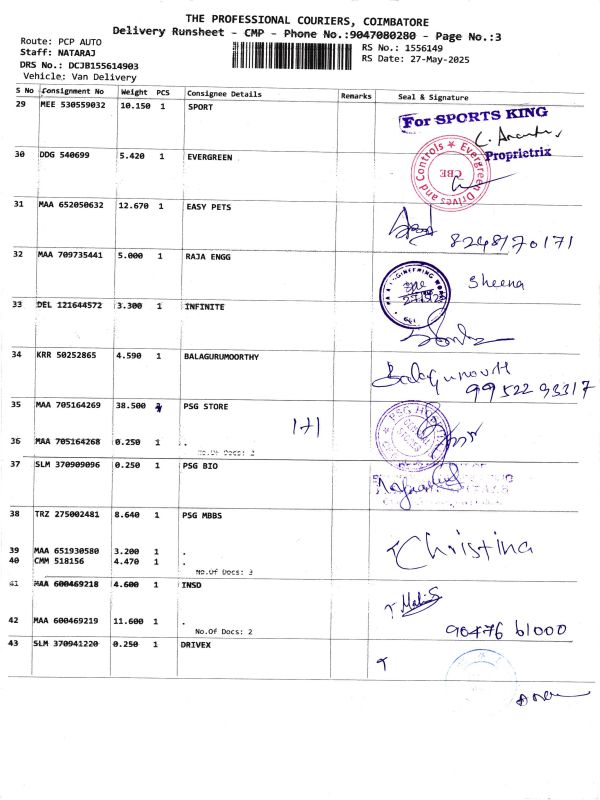 THE PROFESSIONAL COURIERS, COIMBATORE
Delivery Runsheet - CMP - Phone No.:9047080280 - Page No.:3
Route: PCP AUTO
Staff: NATARAJ
DRS No.: DCJB155614903
Vehicle: Van Delivery
RS No.: 1556149
RS Date: 27-May-2025
S No Consignment No Weight PCS Consignee Details Remarks Seal & Signature
29 MEE 530559032 10.150 1 SPORT
For SPORTS KING
Proprietrix
30 DDG 540699 5.420 1 EVERGREEN
Evergreen Drives and Controls
CBE
31 MAA 652050632 12.670 1 EASY PETS
8248170171
32 MAA 709735441 5.000 1 RAJA ENGG
Sheena
33 DEL 121644572 3.300 1 INFINITE
34 KRR 50252865 4.590 1 BALAGURUMOORTHY
9952293317
35 MAA 705164269 38.500 PSG STORE
171
36 MAA 705164268 0.250 1 .
No.Of Docs: 2
37 SLM 370909096 0.250 1 PSG BIO
38 TRZ 275002481 8.640 1 PSG MBBS
39 MAA 651930580 3.200 1 .
40 CMM 518156 4.470 1 .
No.Of Docs: 3
Christina
41 MAA 600469218 4.600 1 INSD
42 MAA 600469219 11.600 1 .
No.Of Docs: 2
90476 61000
43 SLM 370941220 0.250 1 DRIVEX